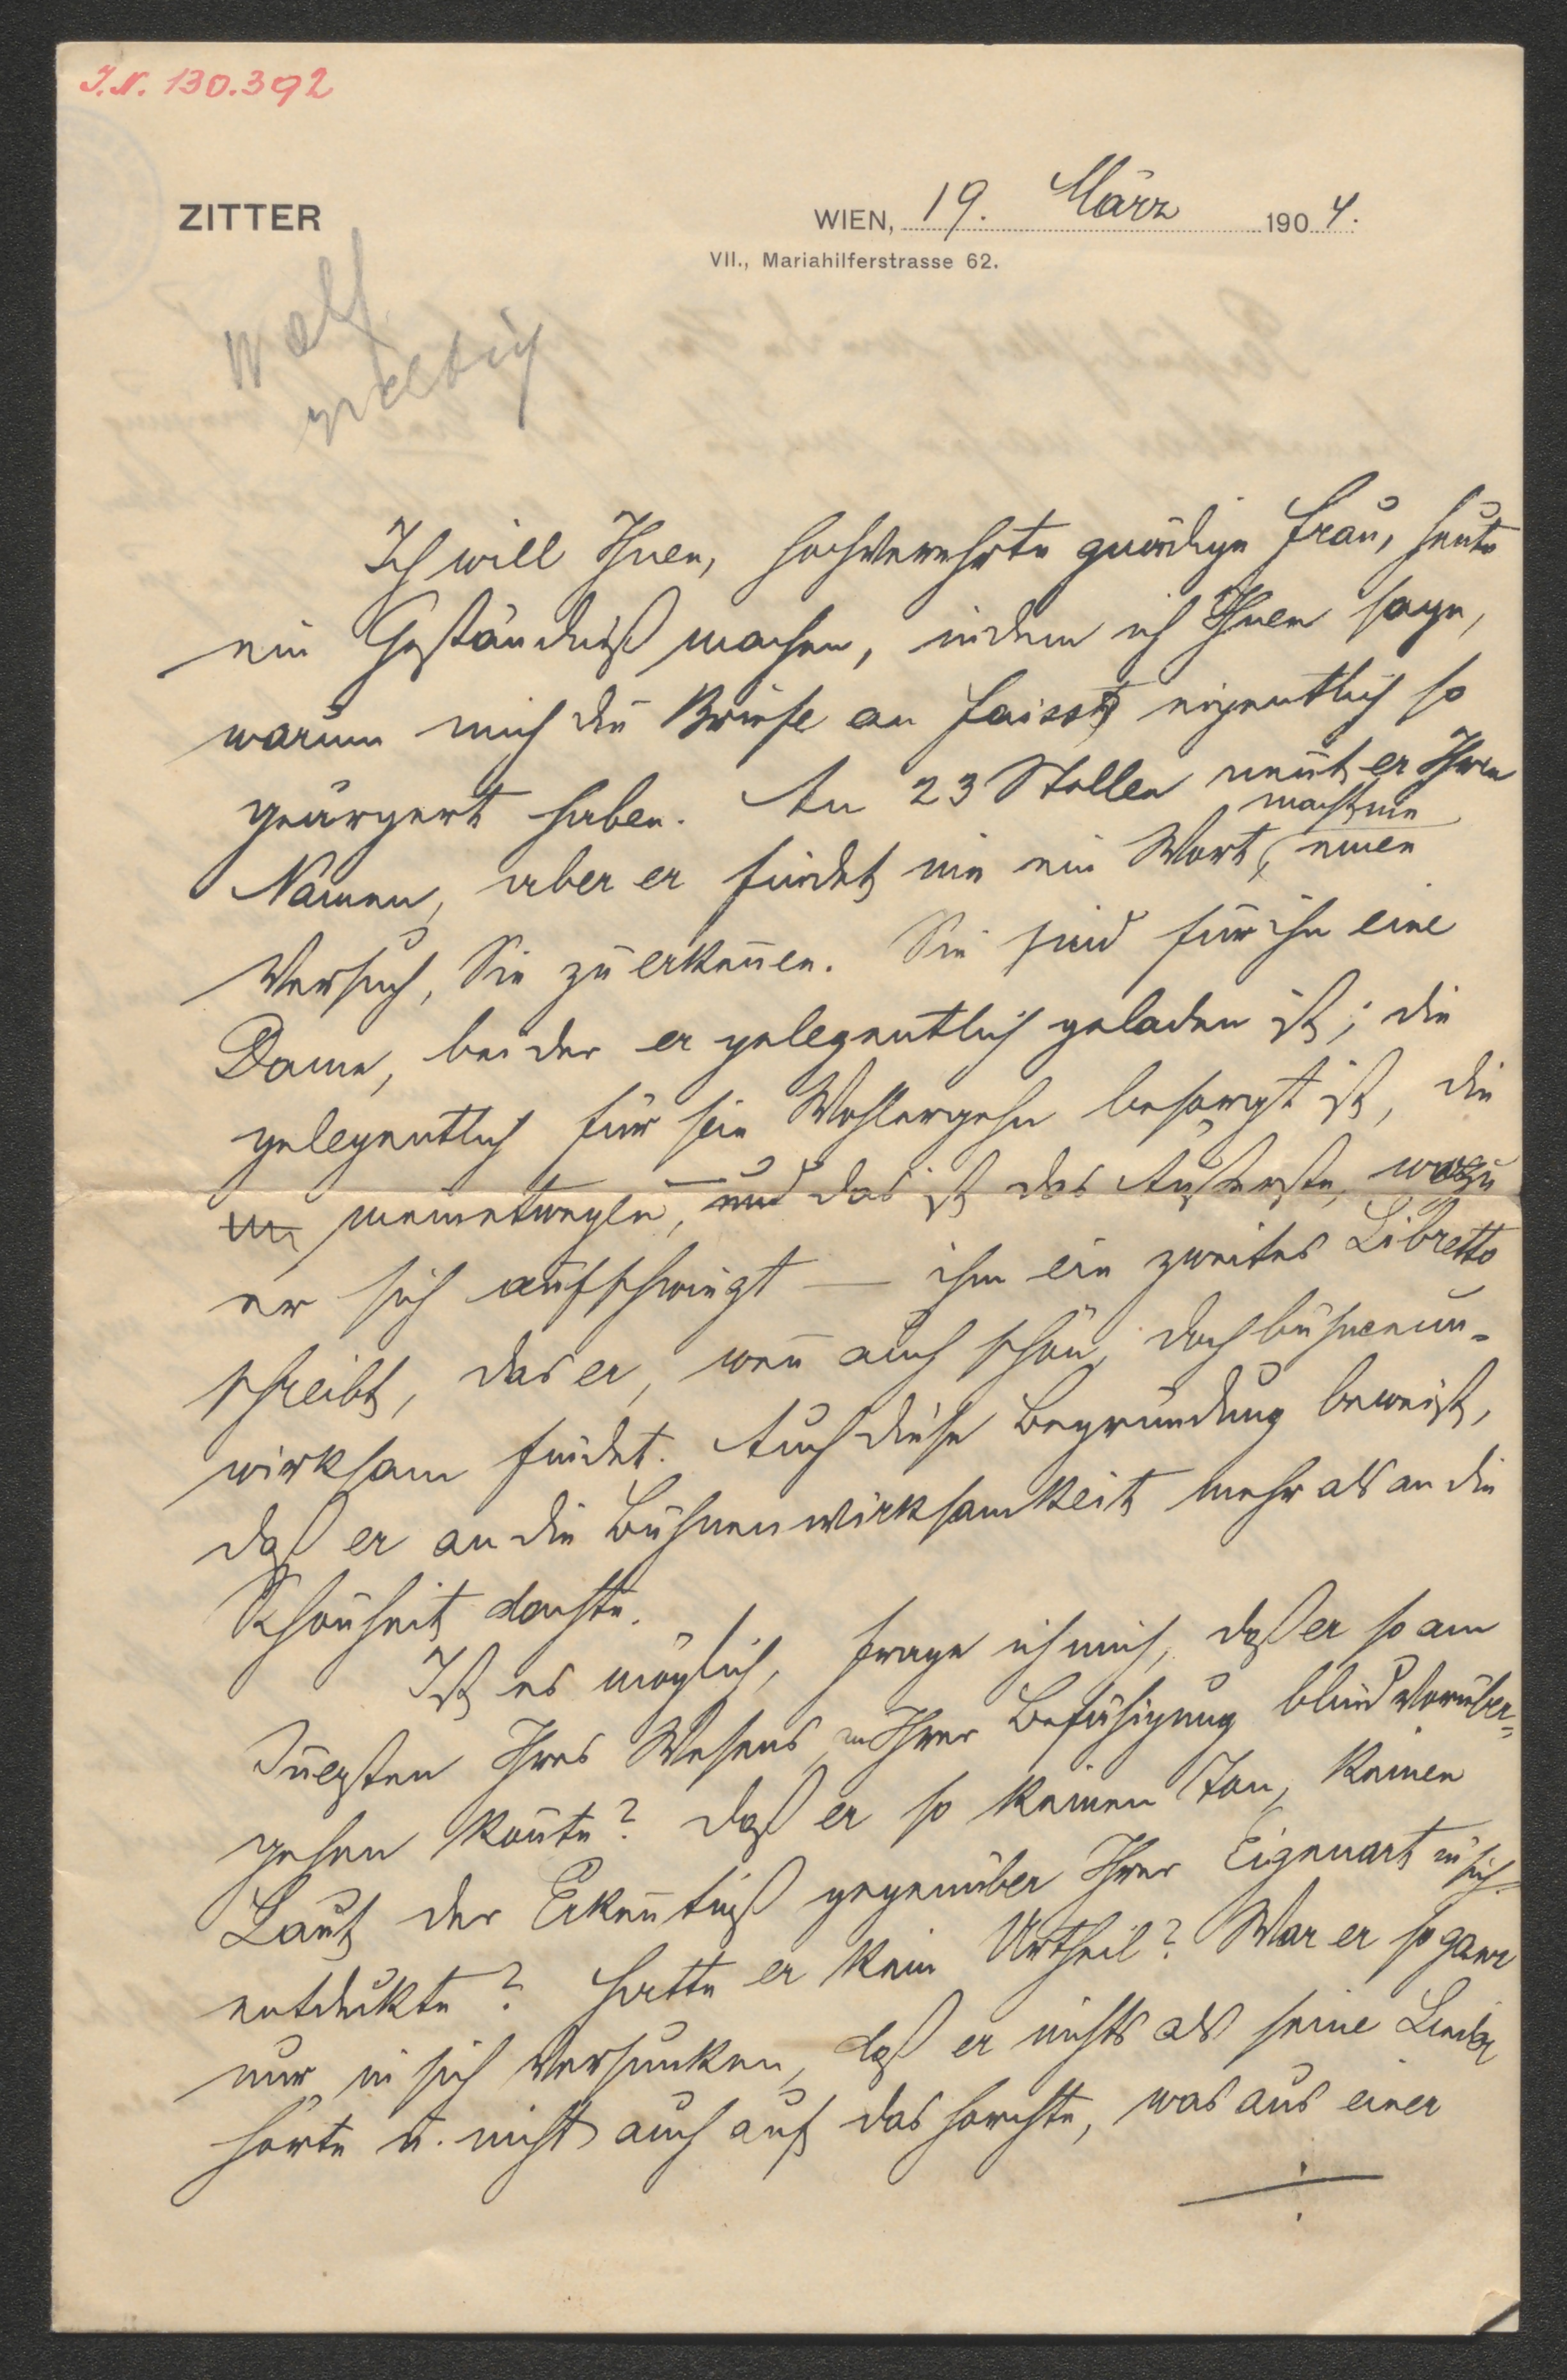 I.N. 130.392
ZITTER
WIEN, 19. März 1904.
VII., Mariahilferstrasse 62.
Wolf
Ich will Ihnen, hochverehrte gnädige Frau, heute
ein Geständniß machen, indem ich Ihnen sage,
warum mich die Briefe an Faisst eigentlich so
geärgert haben. An 23 Stellen nennt er Ihren
macht nie
Namen, aber er findet nie ein Wort, einen
Versuch, Sie zu erkennen. Sie sind für ihn eine
Dame, bei der er gelegentlich geladen ist; die
gelegentlich für sein Wohlergehn besorgt ist, die
meinetwegen, — und das ist das Äußerste, wozu
er sich aufschwingt — ihm ein zweites Libretto
schreibt, das er, wenn auch schön, doch bühnenun-
wirksam findet. Auch diese Begründung beweist,
daß er an die Bühnenwirksamkeit mehr als an die
Schönheit dachte.
Ist es möglich, frage ich mich, daß er so am
Innersten Ihres Wesens, an Ihrer Befähigung blind vorüber-
gehen konnte? Daß er so keinen Ton, keinen
Laut der Erkenntniß gegenüber Ihrer Eigenart in sich
entdeckte? Hatte er kein Urtheil? War er so ganz
nur in sich versunken, daß er nichts als seine Lieder
hörte u. nicht auch auf das horchte, was aus einer